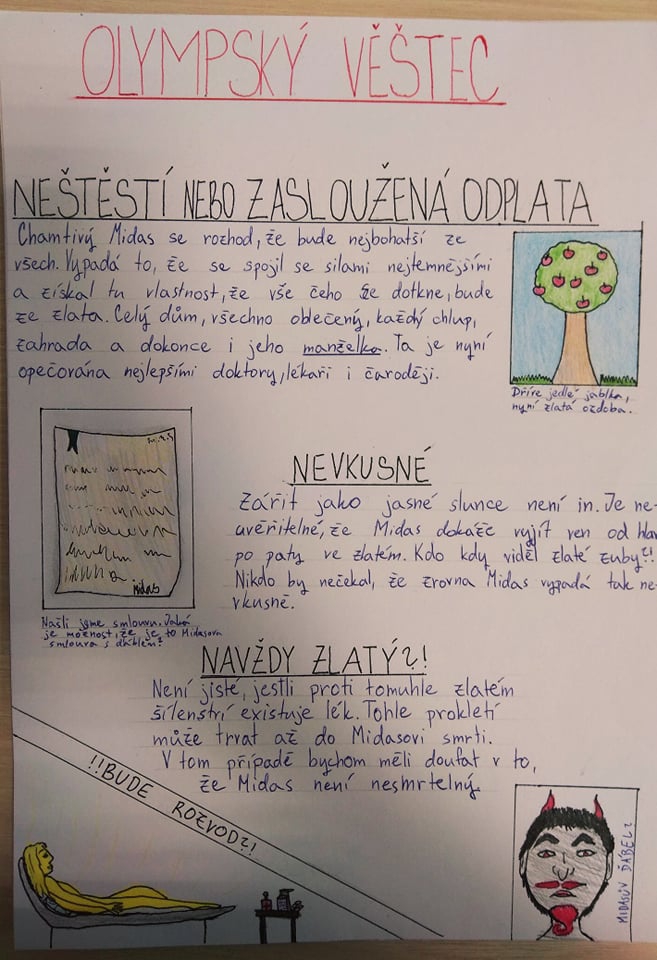 OLYMPSKÝ VĚŠTEC
NEŠTĚSTÍ NEBO ZASLOUŽENÁ ODPLATA
Chamtivý Midas se rozhod, že bude nejbohatší ze
všech. Vypadá to, že se spojil se silami nejtemnějšími
a získal tu vlastnost, že vše čeho se dotkne, bude
ze zlata. Celý dům, všechno oblečený, každý chlup,
zahrada a dokonce i jeho manželka. Ta je nyní
opečorána nejlepšími doktory, lékaři i čaroději.
Dříre jedlé jablka,
nyní zlatá ozdoba.
midas
Našli jsme smlouvu. Jaká
je možnost, že je to Midasova
smlouva s ďáblem?
NEVKUSNÉ
Zářit jako jasné slunce není in. Je ne-
uvěřitelné, že Midas dokáže vyjít ven od hlav
po paty ve zlatém. Kdo kdy viděl zlaté zuby?!
Nikdo by nečekal, že zrovna Midas vypadá tak ne-
vkusně.
NAVŽDY ZLATÝ?!
Není jisté, jestli proti tomuhle zlatém
šílenství existuje lék. Tohle prokletí
může trvat až do Midasovi smrti.
V tom případě bychom měli doufat v to,
že Midas není nesmrtelný.
!!BUDE ROZVOD?!
MIDASŮV ĎÁBEL?